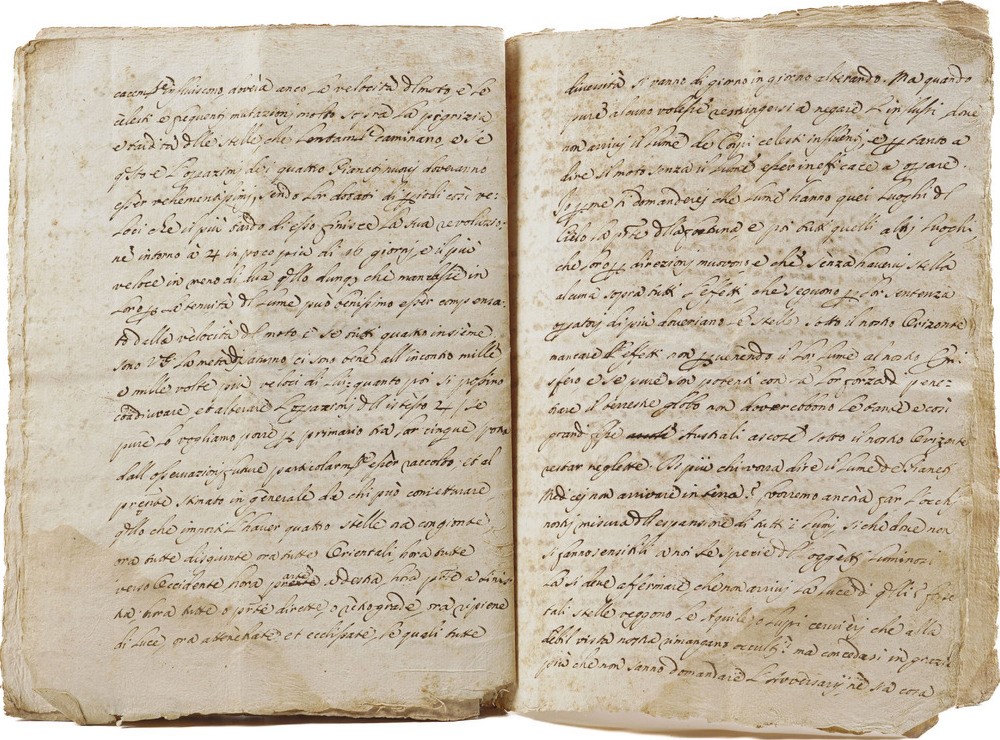 influiscono dovrà anco la velocità del moto, e le
celesti e frequenti mutazioni molto sopra la pigrizia
e tardità delle stelle che lentam.te caminano, e se
q.sto è l'operazioni de i quattro Pianeti nuovi doveranno
esser vehementissime, sendo lor dotati di periodi così ve:
loci che il più tardo di essi finisce la sua revoluzio:
ne intorno à 4 in poco più di 16 giorni, e il più
veloce in meno di dua q.llo dunq; che mancasse in
loro p. la tenuità di lume può benissimo esser compensa:
to dalla velocità del moto e se tutti quattro insieme
sono la metà di Saturno, ci sono bene all'incontro mille
e mille volte più veloci di lui; quanto poi si possino
coadiuvare et alterare l'operazioni dell'istesso 4 | se
pure lo vogliamo porre p. primario trà lor cinque potrà
dall'osservazioni future particolarm.te esser raccolto; et al
pr̃ente stimato in generale da chi può conietturare,
q.llo che importi l'haver quattro stelle ora congionte
ora tutte disgiunte ora tutte Orientali, hora tutte
verso Occidente hora parte a destra hora p.te a sinis:
tra hora tutte o p.te dirette, o retrograde ora ripiene
di luce ora attenuate et ecclissate, le quali tutte
diversità si vanno di giorno in giorno alterando. Ma quando
pure alcuno volesse restringersi a negare l'influssi dove
non arrivi il lume de Corpi celesti influenti, e p. tanto a
dire il moto senza il lume esser inefficace a operare.
Io p. me li domanderei che lume hanno quei luoghi del
Cielo la p.te della fortuna e poi tutti quelli altri luoghi
che sono p. direzioni muovono e che senza havervi stella
alcuna sopra tutti l'effetti che seguono p. lor sentenza
operatori di più doveriano le stelle sotto il nostro Orizonte
mancare d'effetti non pervenendo il lor lume al nostro Emi:
sfero e se pure son potenti con la lor forza di pene:
trare il terrestre globo non doverebbono le tante e così
grandi fisse Australi ascose sotto il nostro Orizonte
restar neglette. Di più chi vorrà dire il lume de Pianeti
Medicei non arrivare in terra? vorremo ancora far l'occhi
nostri misura dell'espansione di tutti i lumi, sì che dove non
si fanno sensibili a noi le spezie dell'oggetti luminosi
là si deve affermare che non arrivi la luce di q.lli? forse
tali stelle veggono le Aquile e lupi cervieri che alla
debil vista nostra rimangano occulte? ma concedasi in grazia
più che non sanno domandare l'Avversarij nè sia cosa